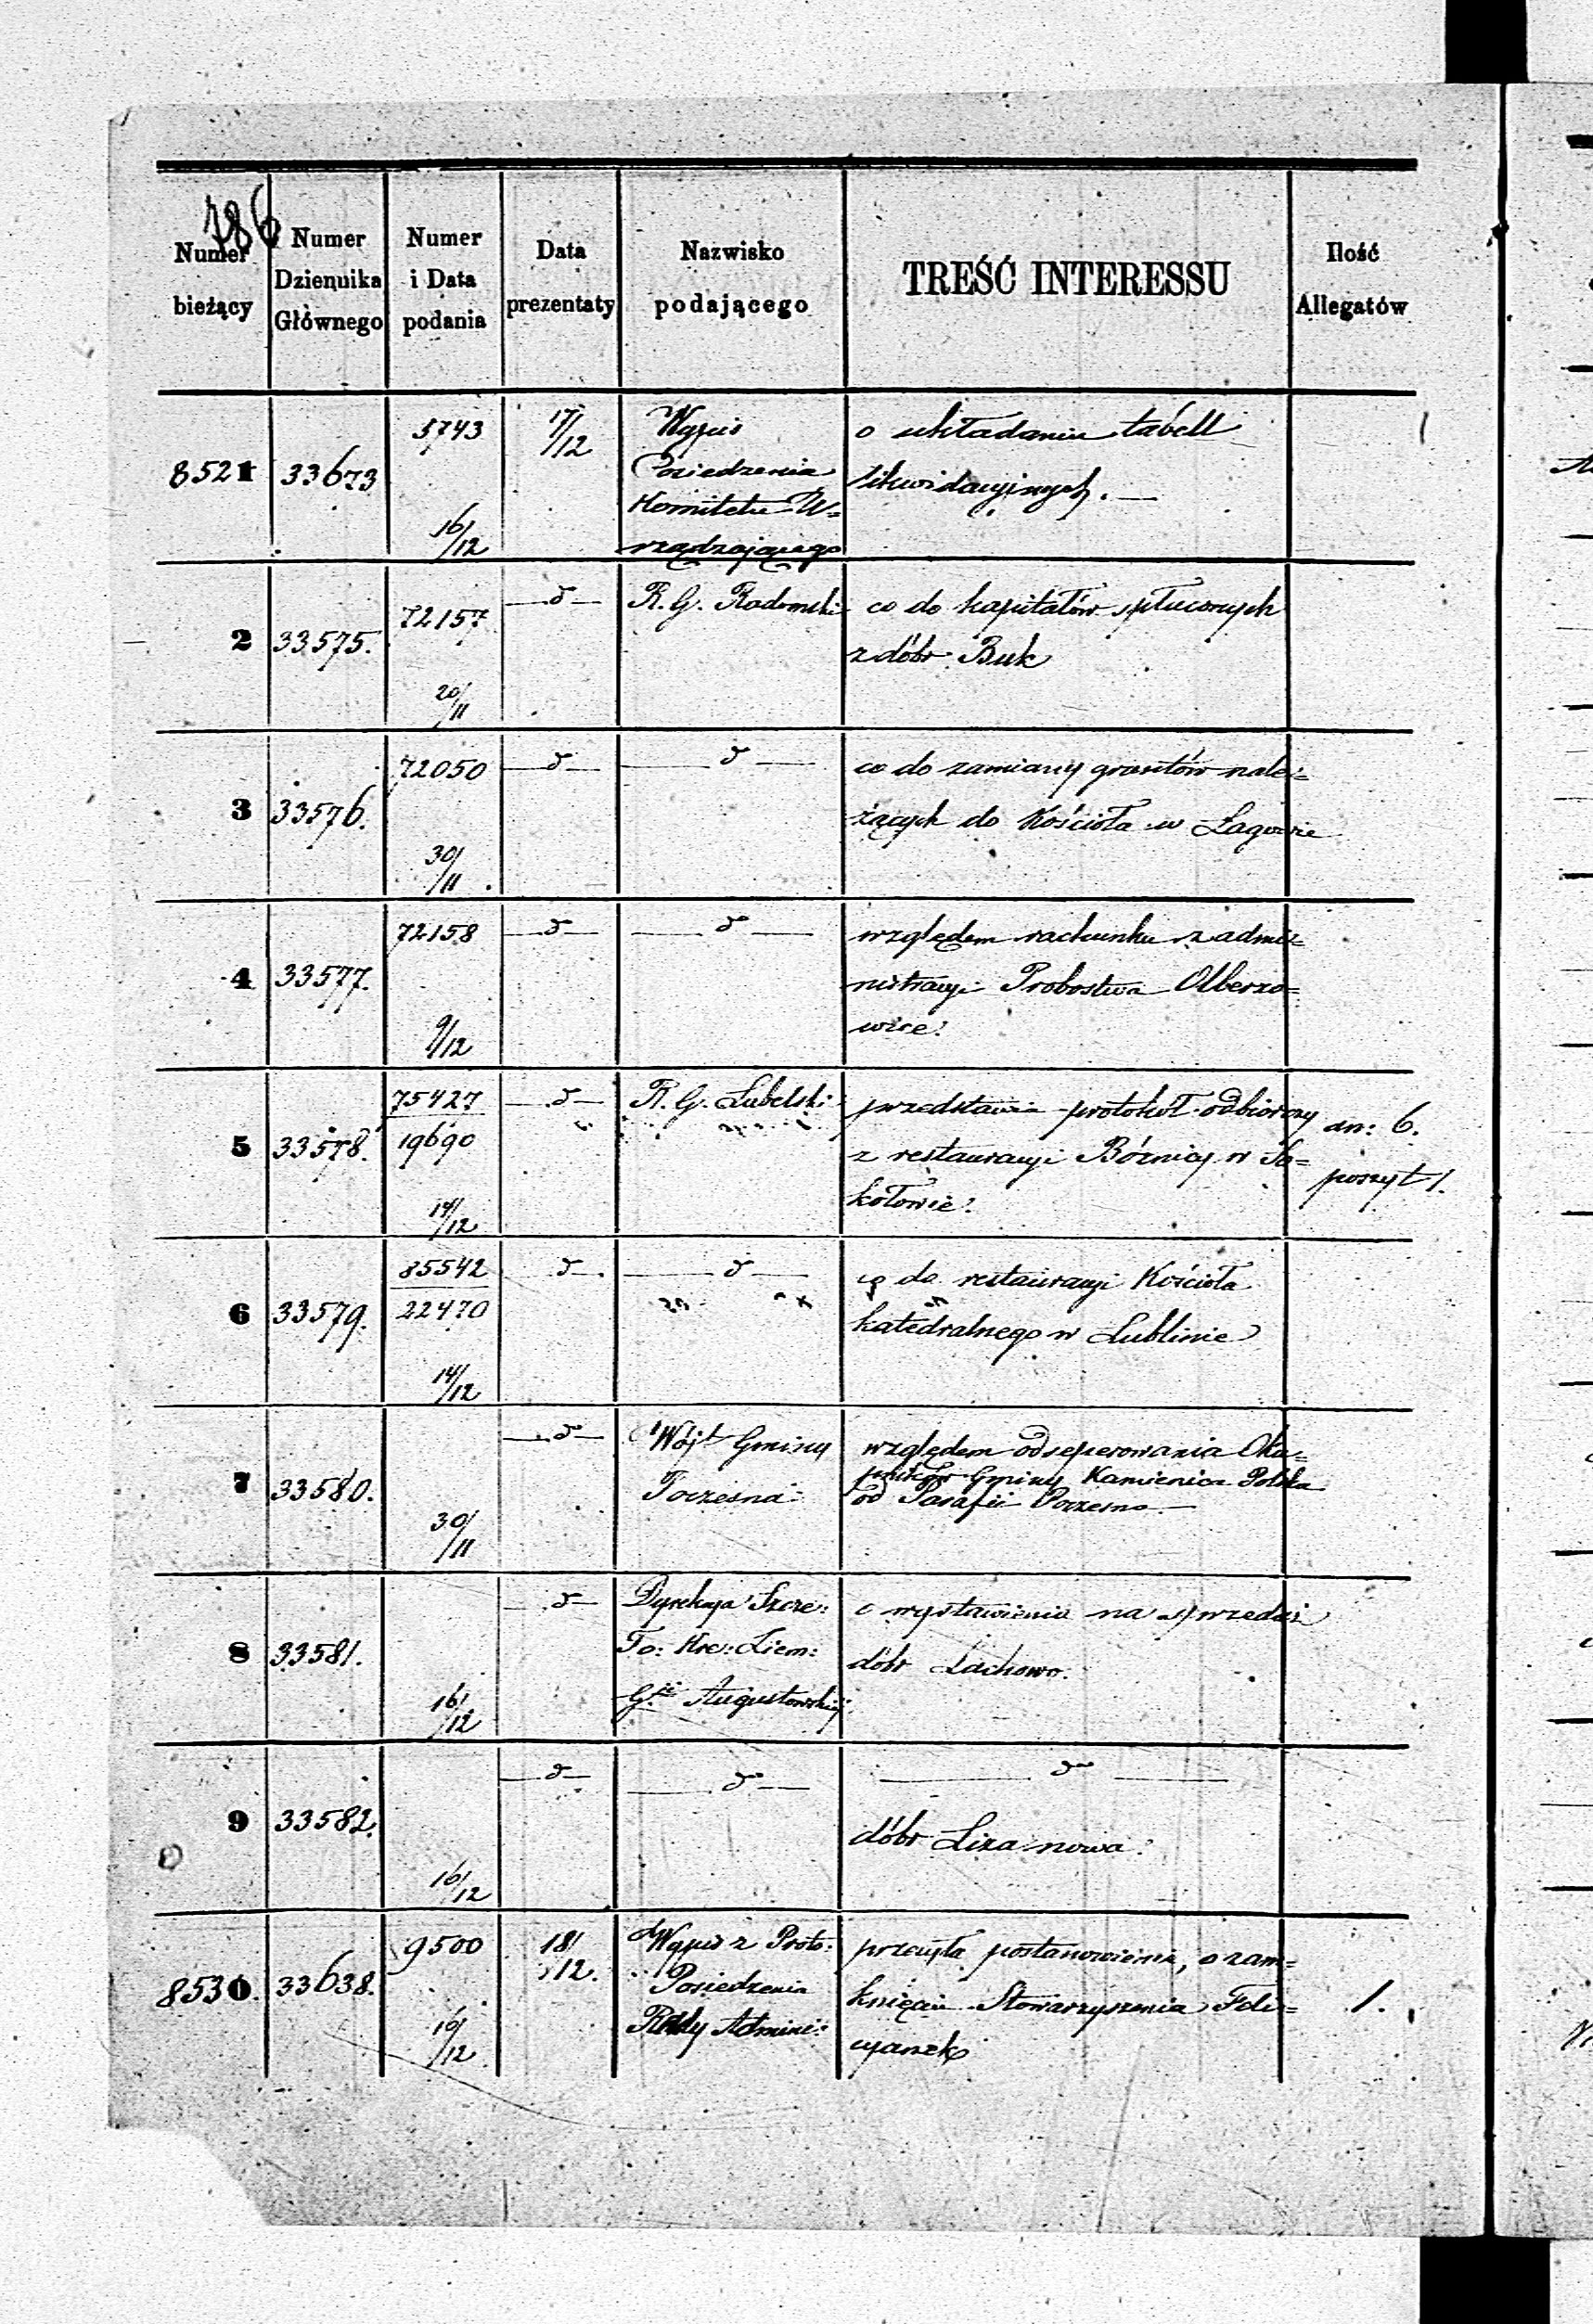 786
Numer bieżący
Numer Dziennika Głównego
Numer i Data podania
Data prezentaty
Nazwisko podającego
TREŚĆ INTERESSU
Ilość Allegatów
8521 33673 5743 16/12 17/12
Wypis
Posiedzenia
Komitetu U=
rządzającego
o układaniu tabell
likwidacyjnych.
2 33575. 72157 20/11 —d—
R. G. Radomski
co do kapitałów spłuconych
z dóbr Buk
3 33576. 72050 30/11 —d— —d—
co do zamiany gruntów nale=
żących do Kościoła w Łagowie
4 33577. 72158 9/12 —d— —d—
względem rachunku z admi=
nistracyi Probostwa Olberzo=
wice.
5 33578. 75427 19690 14/12 —d—
R. G. Lubelski
przedstawia protokół odbiorczy
z restauracyi Bóżnicy w So=
kołowie.
an: 6.
poszyt 1.
6 33579. 85542 22470 14/12 —d— —d—
co do restauracyi Kościoła
katedralnego w Lublinie
7 33580. 30/11 —d—
Wójt Gminy
Poczesna
względem odseperowania Oku=
pników Gminy Kamienica Polska
od Parafii Poczesna
8 33581. 16/12 —d—
Dyrekcya Szcze:
To: Kre: Ziem:
G. Augustowskiej
o wystawieniu na sprzedaż
dóbr Lachowo.
9 33582. 16/12 —d— —d— —d—
dóbr Lizanowa.
8530. 33638. 9500 10/12 18/12.
Wypis z Proto:
Posiedzenia
Rady Admini:
przesyła postanowienie, o zam=
knięciu Stowarzyszenia Feli=
cyanek
1.